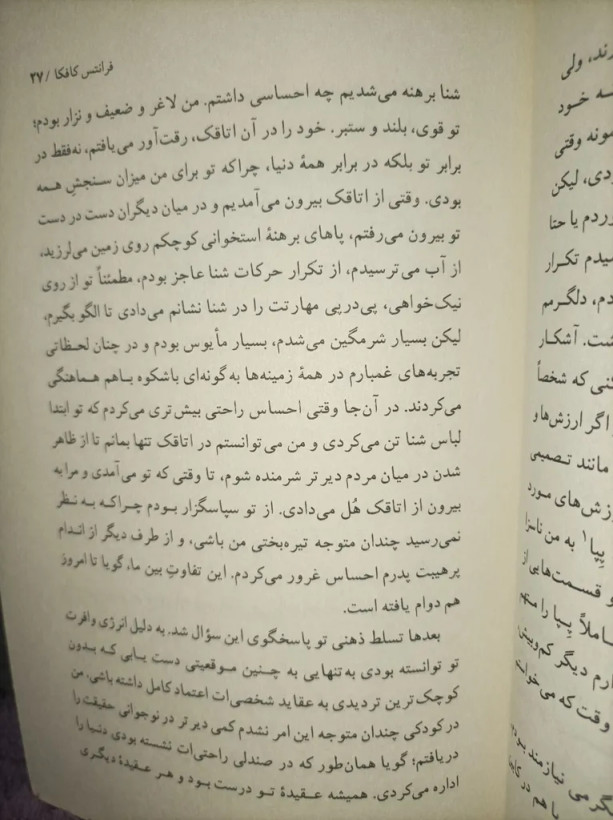 فرانتس کافکا / ۲۷
شنا برهنه می‌شدیم چه احساسی داشتم. من لاغر و ضعیف و نزار بودم؛
تو قوی، بلند و ستبر. خود را در آن اتاقک، رقت‌آور می‌یافتم، نه‌فقط در
برابر تو بلکه در برابر همهٔ دنیا، چراکه تو برای من میزان سنجشِ همه
بودی. وقتی از اتاقک بیرون می‌آمدیم و در میان دیگران دست در دست
تو بیرون می‌رفتم، پاهای برهنهٔ استخوانی کوچکم روی زمین می‌لرزید،
از آب می‌ترسیدم، از تکرار حرکات شنا عاجز بودم، مطمئناً تو از روی
نیک‌خواهی، پی‌درپی مهارتت را در شنا نشانم می‌دادی تا الگو بگیرم،
لیکن بسیار شرمگین می‌شدم، بسیار مأیوس بودم و در چنان لحظاتی
تجربه‌های غمبارم در همهٔ زمینه‌ها به گونه‌ای باشکوه باهم هماهنگی
می‌کردند. در آن‌جا وقتی احساس راحتی بیش‌تری می‌کردم که تو ابتدا
لباس شنا تن می‌کردی و من می‌توانستم در اتاقک تنها بمانم تا از ظاهر
شدن در میان مردم دیر تر شرمنده شوم، تا وقتی که تو می‌آمدی و مرا به
بیرون از اتاقک هُل می‌دادی. از تو سپاسگزار بودم چراکه به نظر
نمی‌رسید چندان متوجه تیره‌بختی من باشی، و از طرف دیگر از اندام
پرهیبت پدرم احساس غرور می‌کردم. این تفاوتِ بین ما، گویا تا امروز
هم دوام یافته است.
بعدها تسلط ذهنی تو پاسخگوی این سؤال شد. به دلیل انرژی وافرت
تو توانسته بودی به‌تنهایی به چنین موقعیتی دست یابی که بدون
کوچک‌ترین تردیدی به عقاید شخصی‌ات اعتماد کامل داشته باشی. من
در کودکی چندان متوجه این امر نشدم کمی دیر تر در نوجوانی حقیقت را
دریافتم؛ گویا همان‌طور که در صندلی راحتی‌ات نشسته بودی دنیا را
اداره می‌کردی. همیشه عقیدهٔ تو درست بود و هر عقیدهٔ دیگری
رند، ولی
سه خود
مونه وقتی
دی، لیکن
ردم یا حتا
سیدم تکرار
دم، دلگرمم
شت. آشکار
ئنی که شخصاً
اگر ارزش‌ها و
مانند تصمیمی
زش‌های مورد
پپا۱ به من ناسزا
و قسمت‌هایی از
املاً پپا را متهم
ارم دیگر کم‌وبیش
وقت که می‌خواستم
گرمی نیازمند بودم